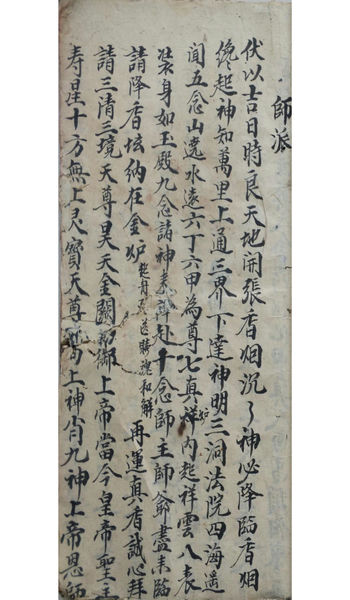 師派
伏以吉日時良天地開張香烟沉々神必降臨香烟
纔起神知萬里上通三界下達神明三洞法院四海遥
闻五念山遶水遠六丁六甲為尊七真祥内起祥雲八表
裝身如玉殿九念請神来降赴十念師主師爺盡来臨
請降香坛纳在金炉 和解 再運真香誠心拜
請三清三境天尊昊天金闕御上帝當今皇帝聖主
寿星十方無上灵寳天尊上神肖九神上帝恩師